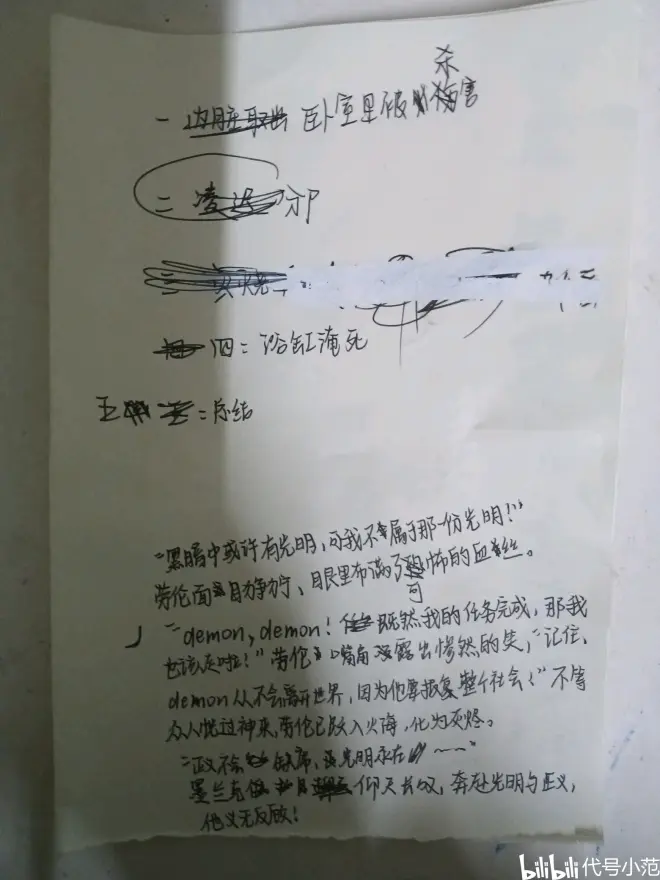 杀
一 内脏取出 卧室里被害
二 凌迟
四：浴缸淹死
五：总结
“黑暗中或许有光明，可我不属于那一份光明！”
劳伦面目狰狞，眼里布满了可怖的血丝。
“demon，demon！既然我的任务完成，那我
也该走啦！”劳伦嘴角露出惨然的笑，“记住，
demon从不会离开世界，因为他要报复整个社会！”不等
众人恍过神来，劳伦已跃入火海，化为灰烬。
“正义不会缺席，光明永在
墨兰克 仰天长叹，奔赴光明与正义，
他义无反顾！
bilibili 代号小范